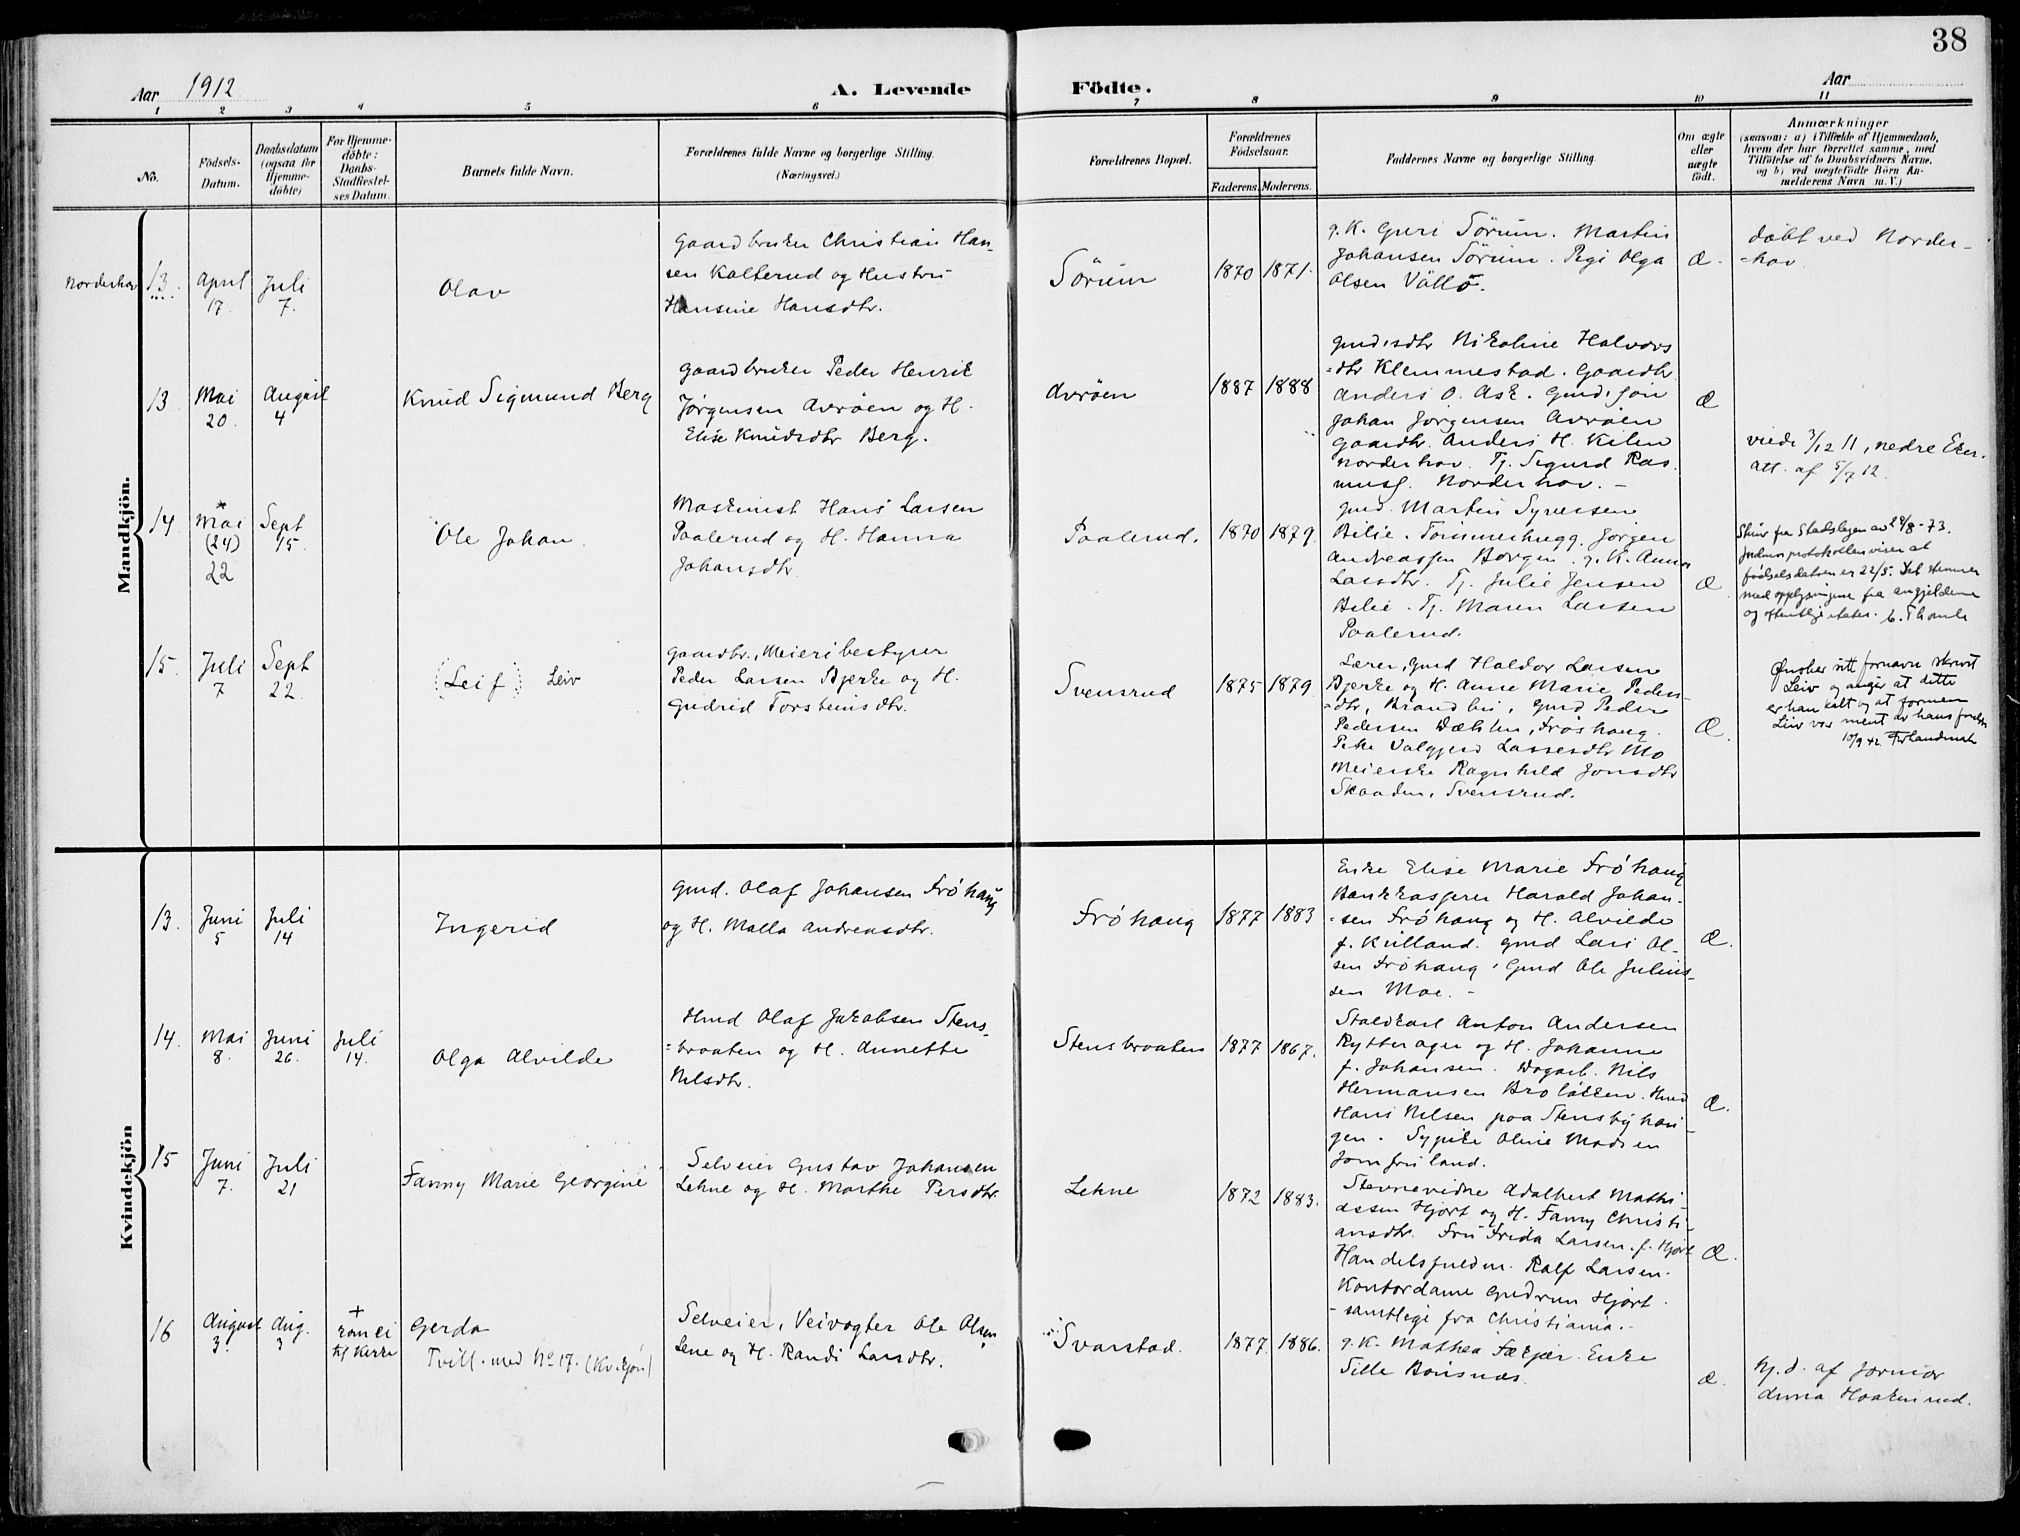 38
Aar 1912
A. Levende
Födte.
Aar
1 2 3 4 5 6 7 8 9 10 11
No.
Födsels-
Datum.
Daabsdatum
(ogsaa for
Hjemme-
döbte)
For Hjemme-
döbte:
Daabs-
Stadfæstel-
ses Datum.
Barnets fulde Navn.
Forældrenes fulde Navne og borgerlige Stilling.
(Næringsvei.)
Forældrenes Bopæl.
Forældrenes
Födselsaar.
Faderens. Moderens.
Faddernes Navne og borgerlige Stilling.
Om ægte
eller
uægte
födt.
Anmærkninger
(saasom: a) i Tilfælde af Hjemmedaab,
hvem der har forrettet samme, med
Tilföielse af to Daabsvidners Navne,
og b) ved uægtefödte Börn An-
melderens Navn m. V.)
Mandkjön.
Norderhov
13
April
17.
Juli
7.
Olav
Gaardbruker Christian Han-
sen Kalterud og Hustru
Hansine Hansdtr.
Sørum
1870
1871.
g. K. Guri Sørum. Martin
Johansen Sørum. Pige Olga
Olsen
Æ.
døbt ved Norder-
-hov
13
Mai
20.
August
4
Knud Sigmund Berg
Gaardbruker Peder Henrik
Jørgensen Avrøen og H.
Elise Knudsdtr Berg.
Avrøen
1887
1888
Gmdsdtr Nikoline Halvors
=dtr Klemmestad. Gaardbr
Anders O. Ask. Gmds. søn
Johan Jørgensen Avrøen
Gaardbr. Anders H. Kilen
Norderhov. Tj. Sigurd Ras
muss. Norderhov. -
Æ
viede 3/12 11, nedre Eker.
att. af 5/7 12.
14
Mai
(24)
22
Sept
15.
Ole Johan
Maskinist Hans Larsen
Paalerud og H. Hanna
Johansdtr.
Paalerud.
1870
1879.
Gmd. Martin Syversen
Bilie. Tømmerhugg. Jørgen
Andreassen Borgen. g. K. Anna
Larsdtr. Tj. Julie Jensen
Bilie. Tj. Maren Larsen
Paalerud.
Æ
Skriv fra Stadslegen av 29/8-73.
Jødmorprotokollen viser at
fødselsdatoen er 22/5. Det stemmer
med opplysningene fra angjeldene
og offentlige etater.
15.
Juli
7
Sept
22.
(Leif) Leiv
Gaardbr., Meieribestyrer
Peder Larsen Bjerke og H.
Gudrid Torsteinsdtr.
Svensrud
1875
1879
Lærer, Gmd Haldor Larsen
Bjerke og H. Anne Marie Peders-
=dtr, Brandbu, Gmd Peder
Pedersen Dæhlen, Frøshaug.
Pike Valgjerd Larsesdtr Mo
Meierske Ragnhild Jonsdtr
Skaaden, Svensrud.
Æ.
Ønsker sitt fornavn skrevet
Leiv og angir at dette
er han kalt og at formen
Leiv var ment av hans foreldre
10/9 42.
Kvindekjön
13.
Juni
5
Juli
14
Ingerid
Gmd. Olaf Johansen Frøhaug
og H. Malla Andreasdtr.
Frøhaug
1877
1883
Enke Elise Marie Frøhaug
Bankkasserer Harald Johan-
=sen Frøhaug og H. Alvilde
f. Kulland. Gmd Lars Ol-
sen Frøhaug, Gmd Ole Julius-
sen Moe. -
Æ.
14.
Mai
8.
Juni
26.
Juli
14.
Olga Alvilde
Hmd Olaf Jakobsen Stens-
=braaten og H. Annette
Nilsdtr.
Stensbraaten
1877
1867.
Staldkarl Anton Andersen
Rytterager og H. Johanne
f. Johansen. Dagarb. Nils
Hermansen Broløkken. Hmd
Hans Nilsen paa Stensbyhau-
gen. Sypike Oline Madsen
Jomfruland.
Æ.
15
Juni
7.
Juli
21
Fanny Marie Georgine
Selveier Gustav Johansen
Lehne og H. Marthe Persdtr.
Lehne
1872
1883.
Stevnevidne Adalbert Mathi-
assen Hjort og H. Fanny Christi-
ansdtr. Fru Frida Larsen, f. Hjort
Handelsfuldm. Ralf Larsen.
Kontordame Gudrun Hjort.
- samtlige fra Christiania. -
Æ.
16
August
3.
Aug.
3
+
kom ei
til Kirke
Gerda
Tvill. med No 17. (Kv.kjøn)
Selveier, Veivogter Ole Olsen
Lene og H. Randi Larsdtr.
Svarstad.
1877.
1886.
g. K. Mathea Fækjær. Enke
Sille Bønsnæs.
Æ.
hj. d. af Jormor
Anna Haakenrud.